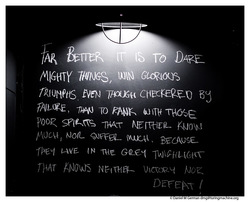 Far Better it is to Dare
mighty things, win glorious
triumphs even though checkered by
failure, than to rank with those
poor spirits that neither know
much, nor suffer much, because
they live in the grey twighlight
that knows neither victory nor
defeat!
© Daniel M German